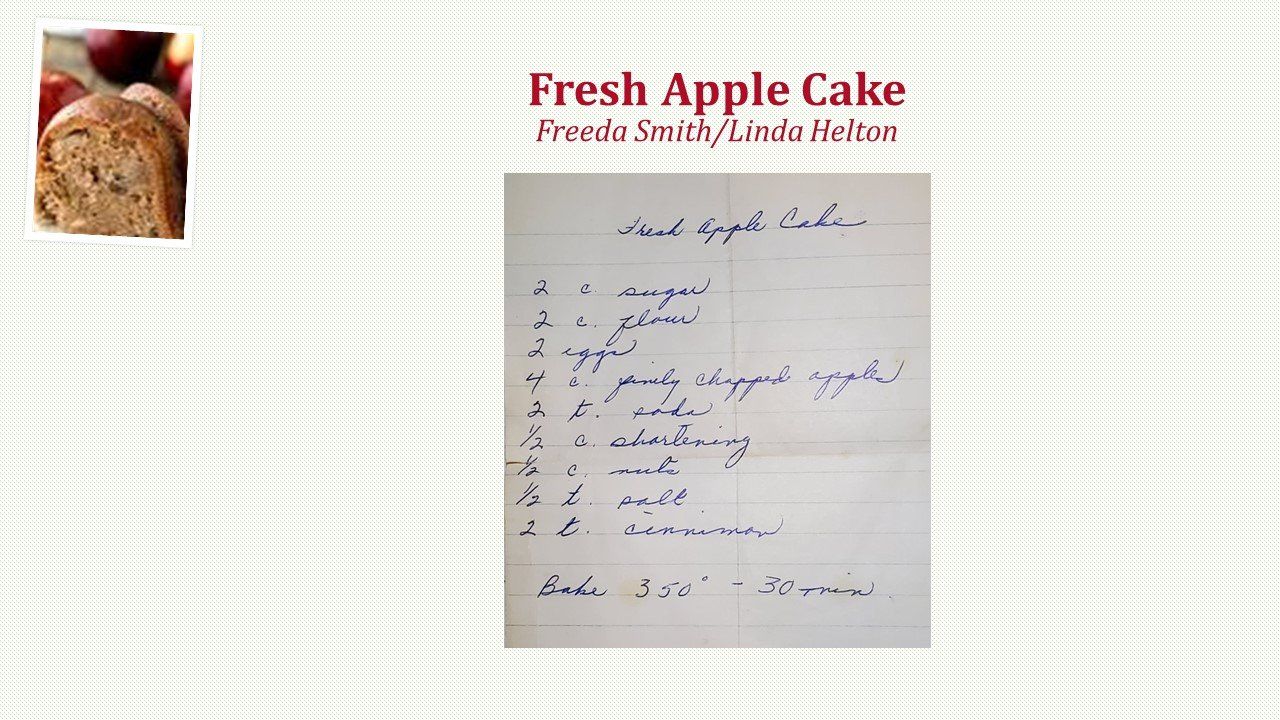 Fresh Apple Cake
Freeda Smith/Linda Helton
Fresh Apple Cake
2 c. sugar
2 c. flour
2 eggs
4 c. finely chopped apples
2 t. soda
1/2 c. shortening
1/2 c. nuts
1/2 t. salt
2 t. cinnimon
Bake 350° - 30 min.